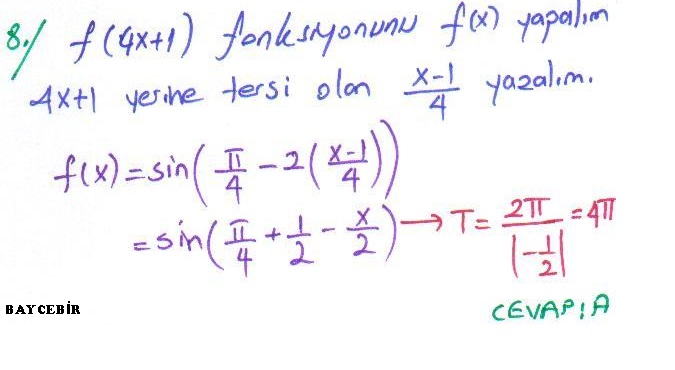 8./ f(4x+1) fonksiyonunu f(x) yapalım
4x+1 yerine tersi olan (x-1)/4 yazalım.
f(x)=sin(π/4 - 2((x-1)/4))
=sin(π/4 + 1/2 - x/2) → T= 2π/|-1/2| = 4π
BAYCEBİR
CEVAP:A